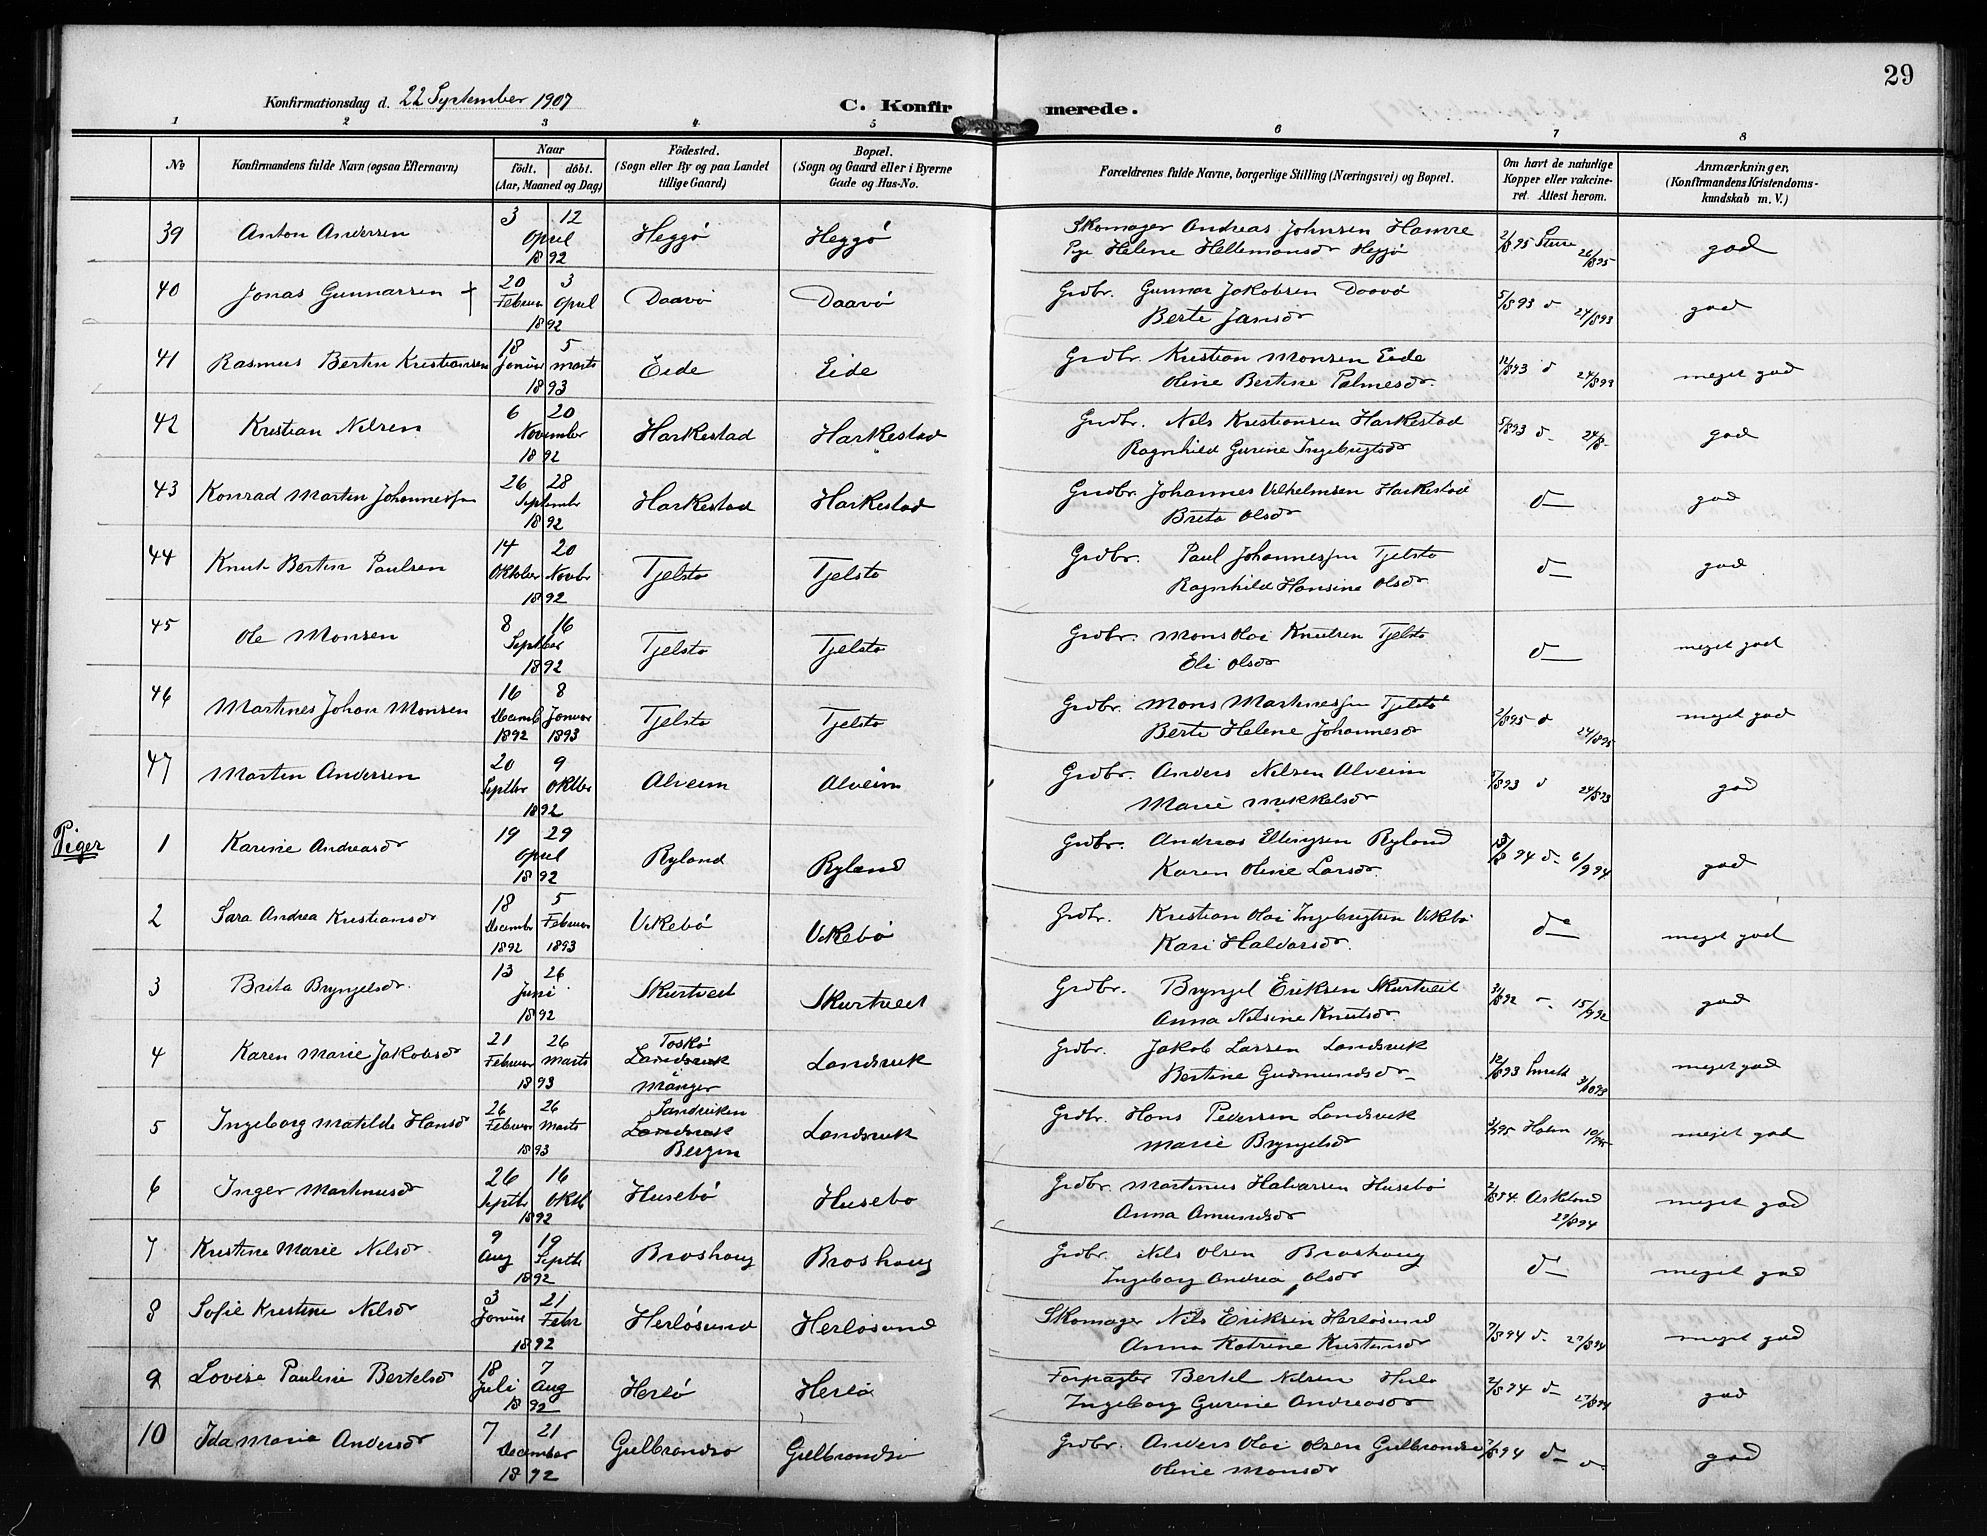 29
Konfirmationsdag d. 22 September 1907
C. Konfirmerede.
1 2 3 4 5 6 7 8
No Konfirmandens fulde Navn (ogsaa Efternavn) Naar født. döbt. (Aar, Maaned og Dag) Födested. (Sogn eller By og paa Landet tillige Gaard) Bopæl. (Sogn og Gaard eller i Byerne Gade og Hus-No. Forældrenes fulde Navne, borgerlige Stilling (Næringsvei) og Bopæl. Om havt de naturlige Kopper eller vakcineret. Attest herom. Anmærkninger. (Konfirmandens Kristendomskundskab m. V.)
39 Anton Andersen 3 12 April 1892 Heggö Heggö Skomager Andreas Johnsen Hamre
Pge Helene Hellemansdr Heggö 2/8 95 26/8 95 god
40 Jonas Gunnarsen + 20 Februar 3 April 1892 Daavö Daavö Grdbr. Gunnar Jakobsen Daavö
Berte Jansdr 5/8 93 d 24/8 93 god
41 Rasmus Bertin Kristiansen 18 Januar 5 Marts 1893 Eide Eide Grdbr. Kristian Monsen Eide
Oline Bertine Palmesdr. 12/8 93 d 24/8 93 meget god
42 Kristian Nilsen 6 20 November 1892 Harkestad Harkestad Grdbr. Nils Kristiansen Harkestad
Ragnhild Gurine Ingebrigtsdr 5/8 93 d 24/8 god
43 Konrad Martin Johannessen 26 28 September 1892 Harkestad Harkestad Grdbr. Johannes Vilhelmsen Harkestad
Brita Olsdr d god
44 Knut Bertin Paulsen 14 Oktober 20 Novbr 1892 Tjelstø Tjelstø Grdbr. Paul Johannessen Tjelstø
Ragnhild Hansine Olsdr d god
45 Ole Monsen 8 16 Septber 1892 Tjelstø Tjelstø Grdbr. Mons Olai Knutsen Tjelstø
Eli Olsdr d meget god
46 Martines Johan Monsen 16 Decemb 1892 8 Januar 1893 Tjelstø Tjelstø Grdbr. Mons Martinessen Tjelstø
Berte Helene Johannesdr 2/8 95 d 24/8 95 meget god
47 Martin Andersen 20 Septbr 9 Oktber 1892 Alveim Alveim Grdbr. Anders Nilsen Alveim
Marie Mikkelsdr 5/8 93 d 24/8 93 god
Piger
1 Karine Andreasdr 19 29 April 1892 Ryland Ryland Grdbr. Andreas Ellingsen Ryland
Karen Oline Larsdr. 94 d 6/9 94 god
2 Sara Andrea Kristiansdr 18 Decembr 1892 5 Februar 1893 Vikebö Vikebö Grdbr. Kristian Olai Ingebrigtsen Vikebö
Kari Halvorsdr. do meget god
3 Brita Bryngelsdr. 13 26 Juni 1892 Skurtveit Skurtveit Grdbr. Bryngel Eriksen Skurtveit
Anna Nilsine Knutsdr. 31/8 92 15/9 92 god
4 Karen Marie Jakobsdr 21 Februar 26 Marts 1893 Toskö Landsvik i Manger Landsvik Grdbr. Jakob Larsen Landsvik
Bertine Gudmundsdr 12/8 93 meget god
5 Ingeborg Matilde Hansdr 26 Februar 26 Marts 1893 Sandviken Landsvik Bergen Landsvik Grdbr. Hans Pedersen Landsvik
Marie Bryngelsdr Holm meget god
6 Inger Martinusdr 26 Septbr 16 Oktb 1892 Husebö Husebö Grdbr. Martinus Halvarsen Husebö
Anna Amundsdr 2/8 94 Askland 27/8 94 meget god
7 Kristine Marie Nilsdr. 9 Aug 19 Septb 1892 Broshaug Broshaug Grdbr. Nils Olsen Broshaug
Ingeborg Andrea Olsdr d meget god
8 Sofie Kristine Nilsdr 3 Januar 21 Febr 1892 Herløsund Herløsund Skomager Nils Eriksen Herløsund
Anna Katrine Kristensdr 7/8 94 d. 27/8 94 meget god
9 Lovise Pauline Bertelsdr 18 Juli 7 Aug 1892 Herlö Herlö Forpagter Bertel Nilsen Herlö
Ingeborg Gurine Andreasdr 2/8 94 d 27/8 94 god
10 Ida Marie Andersdr 7 21 December 1892 Gulbrandsø Gulbrandsø Grdbr. Anders Olai Olsen Gulbrandsø
Oline Monsdr 94 d d god